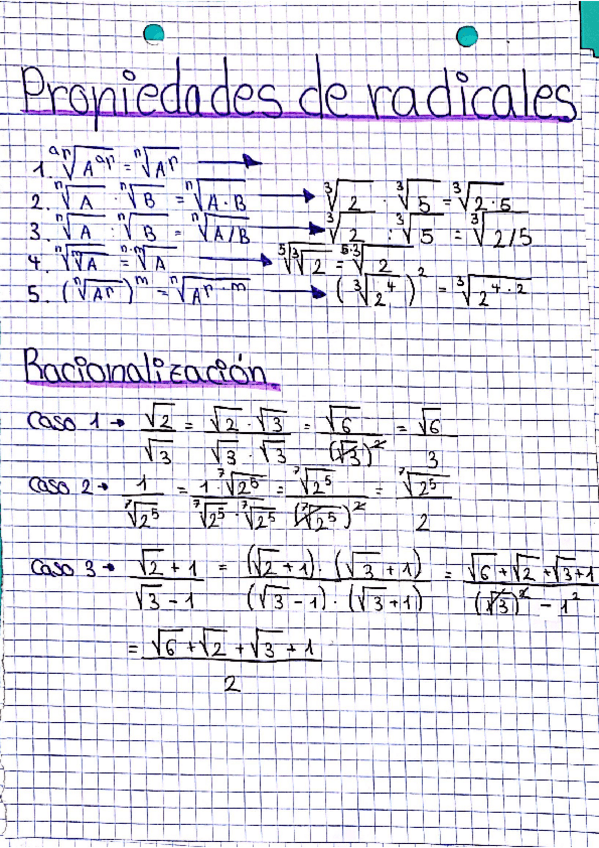 Propiedades de radicales
1. ᵃⁿ√Aᵃⁿ = ⁿ√Aⁿ →
2. ⁿ√A · ⁿ√B = ⁿ√A·B → ³√2 · ³√5 = ³√2·5
3. ⁿ√A : ⁿ√B = ⁿ√A/B → ³√2 : ³√5 = ³√2/5
4. ⁿ√ᵐ√A = ⁿ·ᵐ√A → ⁵√³√2 = ⁵·³√2
5. (ⁿ√Aⁿ)ᵐ = ⁿ√Aⁿ·ᵐ → (³√2⁴)² = ³√2⁴·²
Racionalización
Caso 1 → √2/√3 = √2·√3/√3·√3 = √6/(√3)² = √6/3
Caso 2 → 1/⁷√2⁵ = 1·⁷√2⁵/⁷√2⁵·⁷√2⁵ = ⁷√2⁵/(⁷√2⁵)² = ⁷√2⁵/2
Caso 3 → √2+1/√3-1 = (√2+1)·(√3+1)/(√3-1)·(√3+1) = √6+√2+√3+1/(√3)²-1²
= √6+√2+√3+1/2